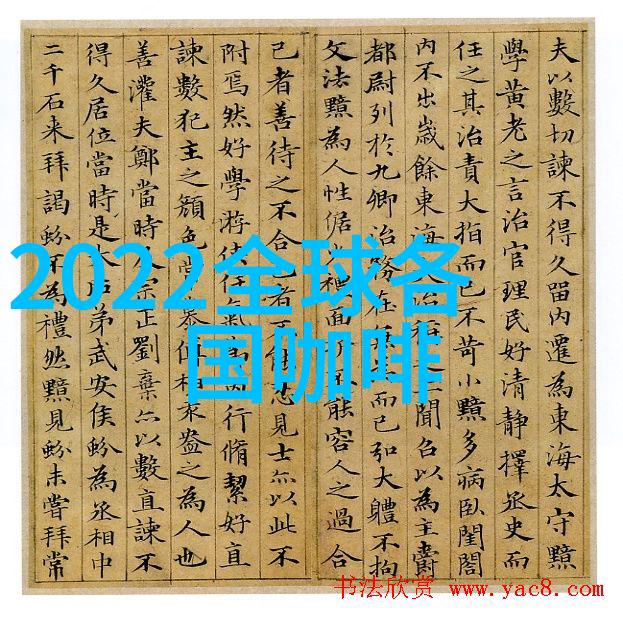 夫以數切諫不得久留內遷為東海太守黯
學黃老之言治官理民好清靜擇丞史而
任之其治責大指而已不苛小黯多病臥閨閤
內不出歲餘東海大治稱之聞召以為主爵
都尉列於九卿治務在而已弘大體不拘
文法黯為人性倨少禮面折不能容人之過合
己者善待之不合己者不能忍見士亦以此不
附焉然好學游俠任氣節內行脩絜好直
諫數犯主之顏色常慕傅柏袁盎之為人也
善灌夫鄭當時及宗正劉棄亦以數直諫不
得久居位當時是太后弟武安侯蚡為丞相中
二千石来拜謁蚡不為禮然黯見蚡未嘗拜常
2022全球各
国咖啡
书法欣赏 www.yac8.com